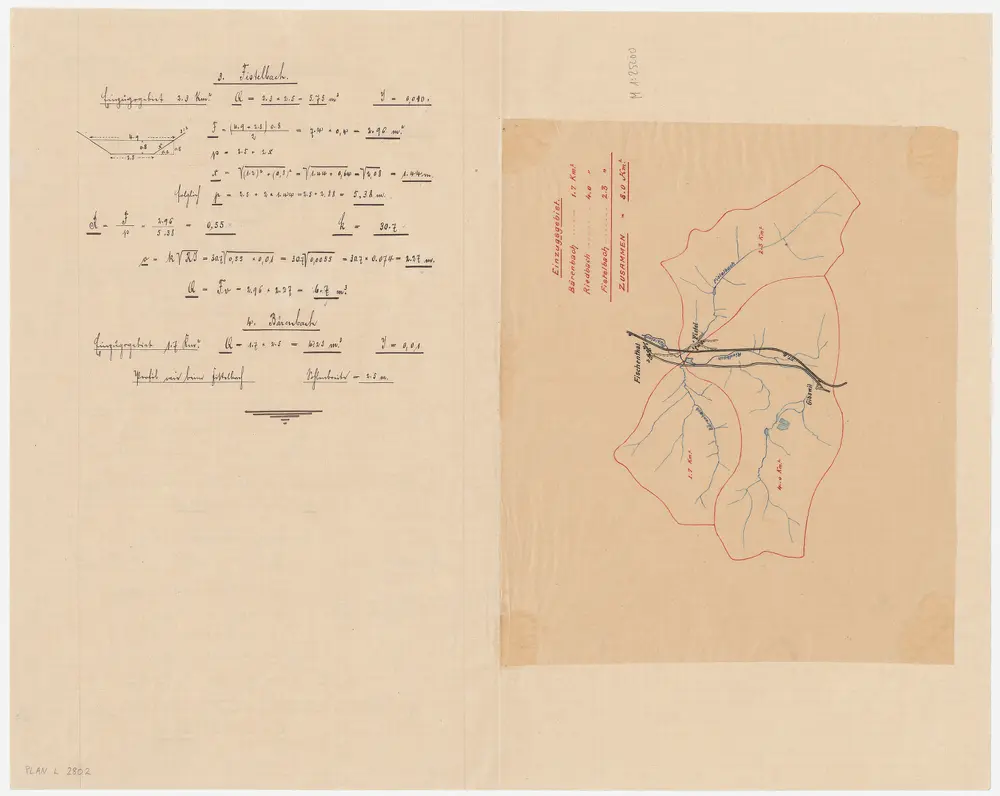 3. Fistelbach.
Einzugsgebiet 2.3 Km². Q = 2.3 × 2.5 = 5.75 m³ J = 0,010.
F = (4.9 + 2.5) 0.8 / 2 = 7.4 × 0,4 = 2.96 m².
4.9
0.8
2.5
p = 2.5 +
x = √(1.2)² + (0,8)² = √1.44 + 0,64 = √2,08 = 1.44 m.
folglich p = 2.5 + 2 × 1.44 = 2.5 + 2.88 = 5.38 m.
R = F / p = 2.96 / 5.38 = 0,55 k = 30.7
v = k √RJ = 30.7 √0,55 × 0,01 = 30.7 √0,0055 = 30.7 × 0.074 = 2.27 m.
Q = Fv = 2.96 × 2.27 = 6.7 m³
4. Bärenbach
Einzugsgebiet 1.7 Km². Q = 1.7 × 2.5 = 4.25 m³ J = 0,01
Profil wie beim Fistelbach Sohlenbreite = 2.5 m.
M 1:25000
Einzugsgebiet.
Bärenbach ........ 1.7 Km²
Riedbach ........ 4.0 "
Fistelbach ........ 2.3 "
ZUSAMMEN = 8.0 Km²
2.3 Km²
Fistelbach
Fistel
Fischenthal
Riedbach
Gibswil
1.7 Km²
4.0 Km²
PLAN L 2802